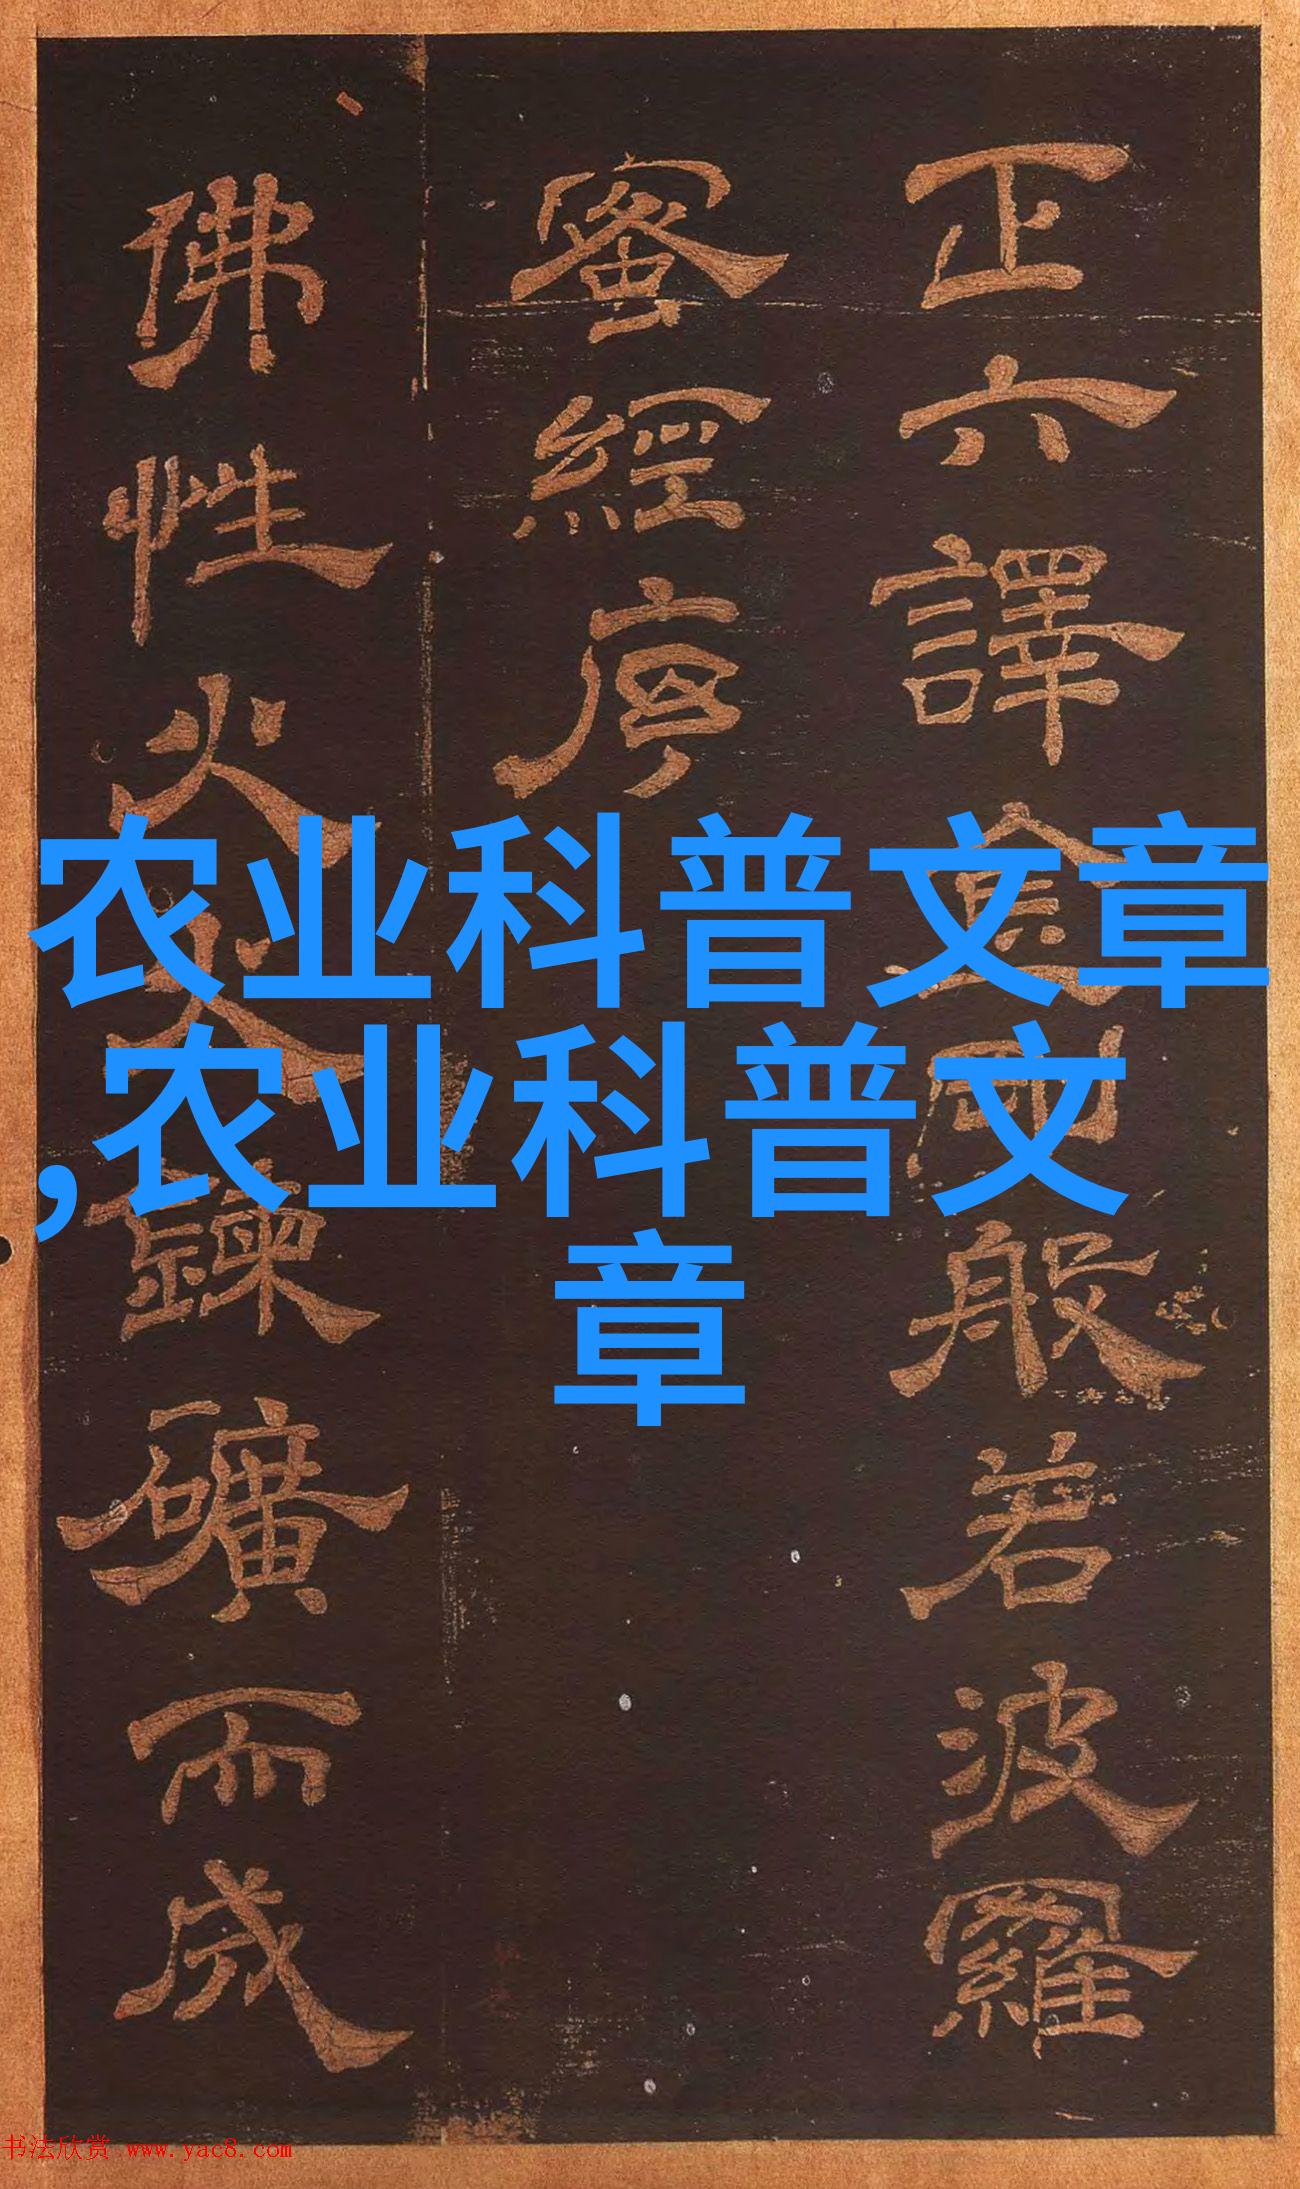 正六譯金剛般若波羅
蜜經序
佛性火
鍊礦而成
农业科普文章
,农业科普文
章
书法欣赏 www.yac8.com